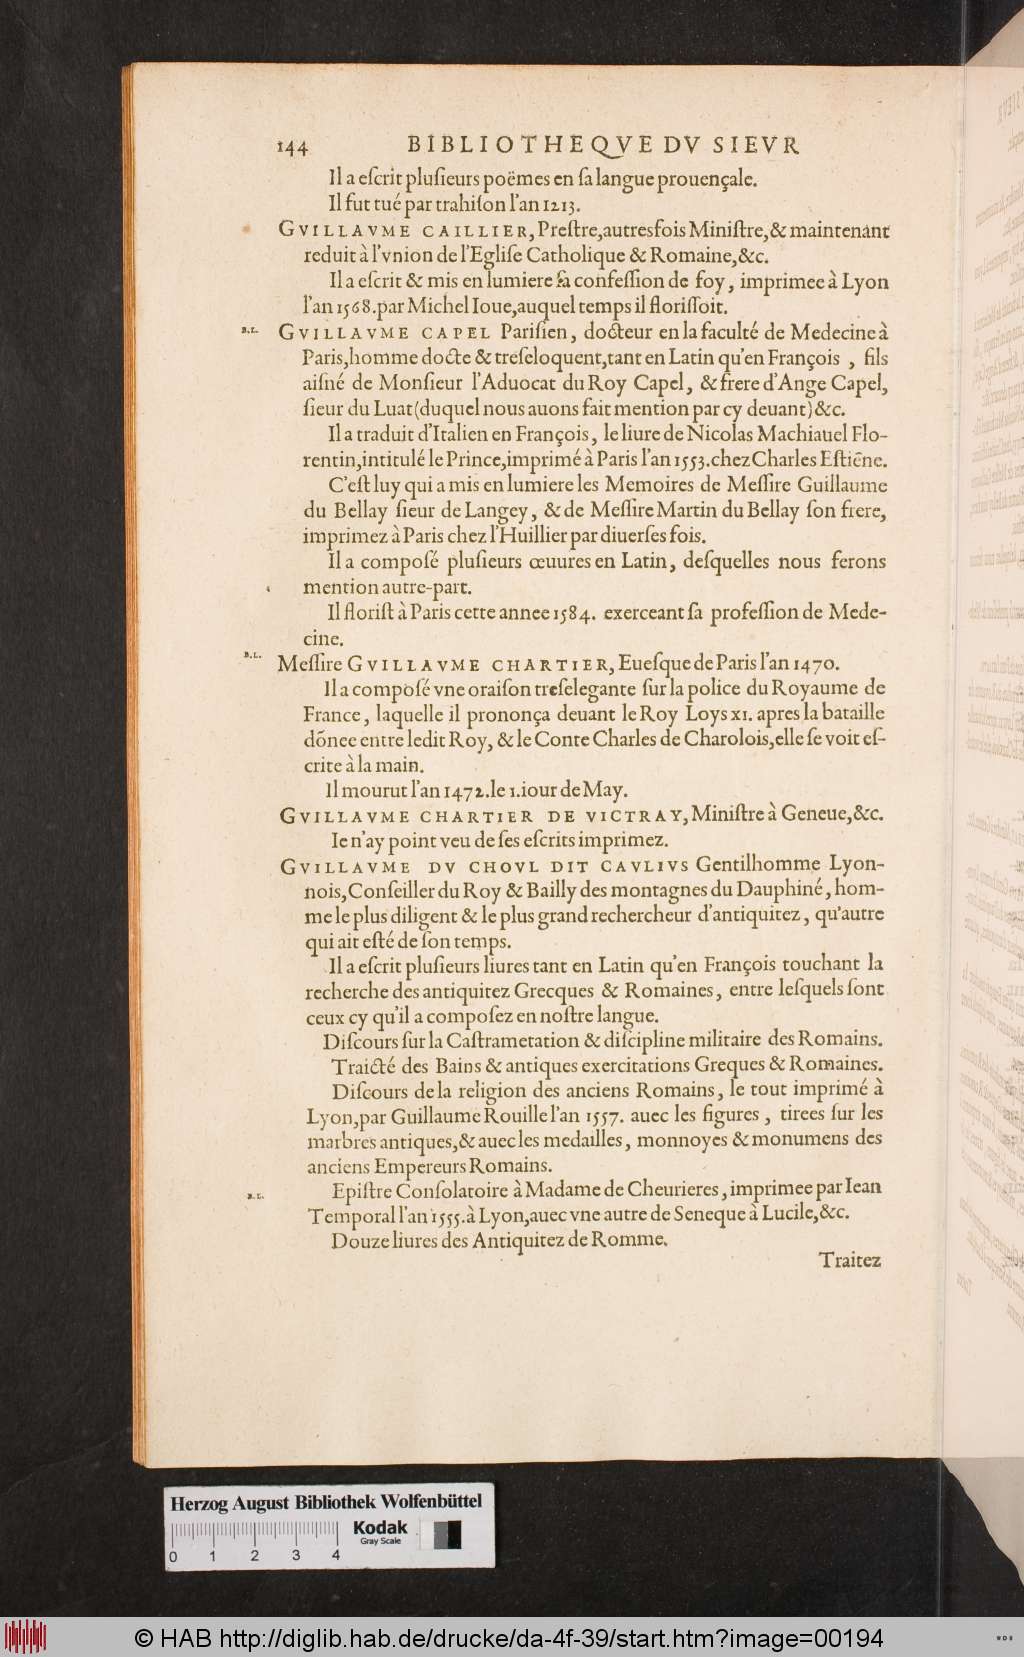 144 BIBLIOTHEQVE DV SIEVR
Il a eſcrit pluſieurs poëmes en ſa langue prouençale.
Il fut tué par trahiſon l'an 1213.
GVILLAVME CAILLIER, Preſtre, autresfois Miniſtre, & maintenant
reduit à l'vnion de l'Egliſe Catholique & Romaine, &c.
Il a eſcrit & mis en lumiere ſa confeſſion de foy, imprimee à Lyon
l'an 1568. par Michel Ioue, auquel temps il floriſſoit.
B.L. GVILLAVME CAPEL Pariſien, docteur en la faculté de Medecine à
Paris, homme docte & treſeloquent, tant en Latin qu'en François, fils
aiſné de Monſieur l'Aduocat du Roy Capel, & frere d'Ange Capel,
ſieur du Luat (duquel nous auons fait mention par cy deuant) &c.
Il a traduit d'Italien en François, le liure de Nicolas Machiauel Flo-
rentin, intitulé le Prince, imprimé à Paris l'an 1553. chez Charles Eſtiẽne.
C'eſt luy qui a mis en lumiere les Memoires de Meſſire Guillaume
du Bellay ſieur de Langey, & de Meſſire Martin du Bellay ſon frere,
imprimez à Paris chez l'Huillier par diuerſes fois.
Il a compoſé pluſieurs œuures en Latin, deſquelles nous ferons
mention autre-part.
Il floriſt à Paris cette annee 1584. exerceant ſa profeſſion de Mede-
cine.
B.L. Meſſire GVILLAVME CHARTIER, Eueſque de Paris l'an 1470.
Il a compoſé vne oraiſon treſelegante ſur la police du Royaume de
France, laquelle il prononça deuant le Roy Loys XI. apres la bataille
dõnee entre ledit Roy, & le Conte Charles de Charolois, elle ſe voit eſ-
crite à la main.
Il mourut l'an 1472. le 1. iour de May.
GVILLAVME CHARTIER DE VICTRAY, Miniſtre à Geneue, &c.
Ie n'ay point veu de ſes eſcrits imprimez.
GVILLAVME DV CHOVL DIT CAVLIVS Gentilhomme Lyon-
nois, Conſeiller du Roy & Bailly des montagnes du Dauphiné, hom-
me le plus diligent & le plus grand rechercheur d'antiquitez, qu'autre
qui ait eſté de ſon temps.
Il a eſcrit pluſieurs liures tant en Latin qu'en François touchant la
recherche des antiquitez Grecques & Romaines, entre leſquels ſont
ceux cy qu'il a compoſez en noſtre langue.
Diſcours ſur la Caſtrametation & diſcipline militaire des Romains.
Traicté des Bains & antiques exercitations Greques & Romaines.
Diſcours de la religion des anciens Romains, le tout imprimé à
Lyon, par Guillaume Rouille l'an 1557. auec les figures, tirees ſur les
marbres antiques, & auec les medailles, monnoyes & monumens des
anciens Empereurs Romains.
B.L. Epiſtre Conſolatoire à Madame de Cheurieres, imprimee par Iean
Temporal l'an 1555. à Lyon, auec vne autre de Seneque à Lucile, &c.
Douze liures des Antiquitez de Romme.
Traitez
Herzog August Bibliothek Wolfenbüttel
Kodak
Gray Scale
0 1 2 3 4
© HAB http://diglib.hab.de/drucke/da-4f-39/start.htm?image=00194